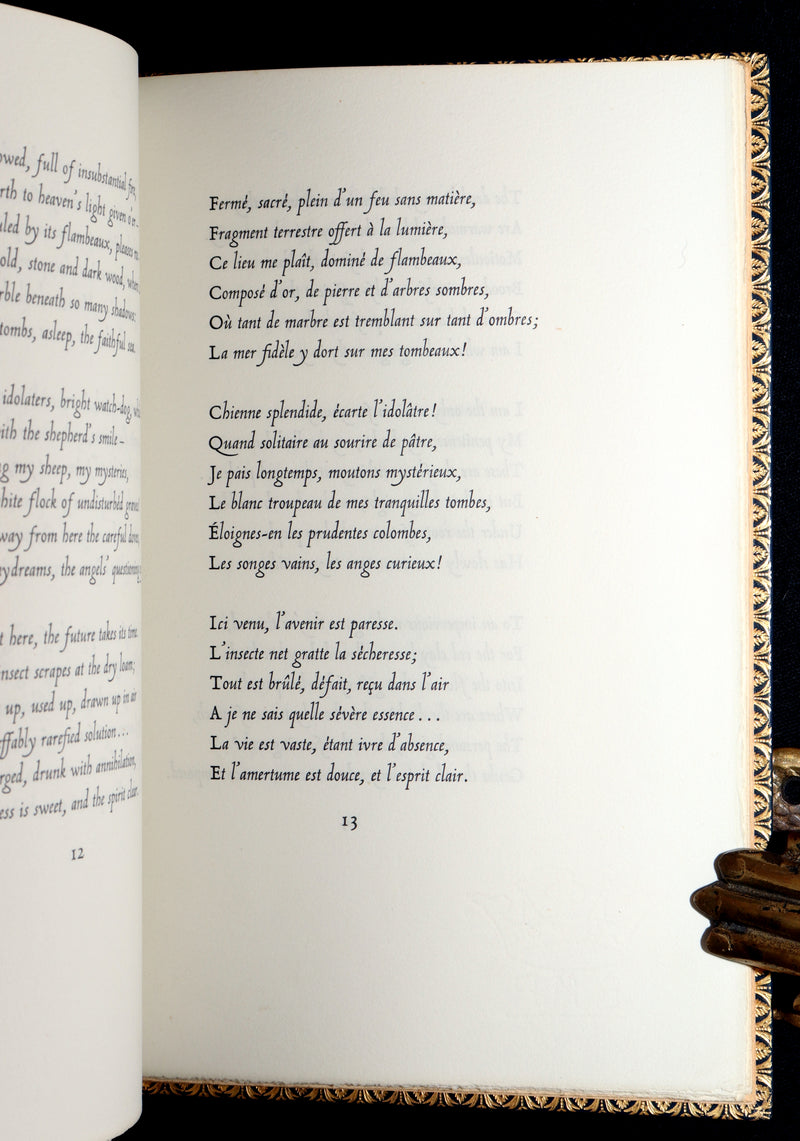 owed, full of insubstantial fire,
rth to heaven's light given o'er
led by its flambeaux, pleases me
old, stone and dark wood, where
rble beneath so many shadows;
tombs, asleep, the faithful sea.
idolaters, bright watch-dog,
ith the shepherd's smile –
g my sheep, my mysteries,
hite flock of undisturbed
way from here the careful doves,
y dreams, the angels' questioning
t here, the future takes its time
nsect scrapes at the dry loam;
up, used up, drawn up in air
ffably rarefied solution...
rged, drunk with annihilation,
ess is sweet, and the spirit clear.
12
Fermé, sacré, plein d'un feu sans matière,
Fragment terrestre offert à la lumière,
Ce lieu me plaît, dominé de flambeaux,
Composé d'or, de pierre et d'arbres sombres,
Où tant de marbre est tremblant sur tant d'ombres;
La mer fidèle y dort sur mes tombeaux!
Chienne splendide, écarte l'idolâtre!
Quand solitaire au sourire de pâtre,
Je pais longtemps, moutons mystérieux,
Le blanc troupeau de mes tranquilles tombes,
Éloignes-en les prudentes colombes,
Les songes vains, les anges curieux!
Ici venu, l'avenir est paresse.
L'insecte net gratte la sécheresse;
Tout est brûlé, défait, reçu dans l'air
A je ne sais quelle sévère essence . . .
La vie est vaste, étant ivre d'absence,
Et l'amertume est douce, et l'esprit clair.
13